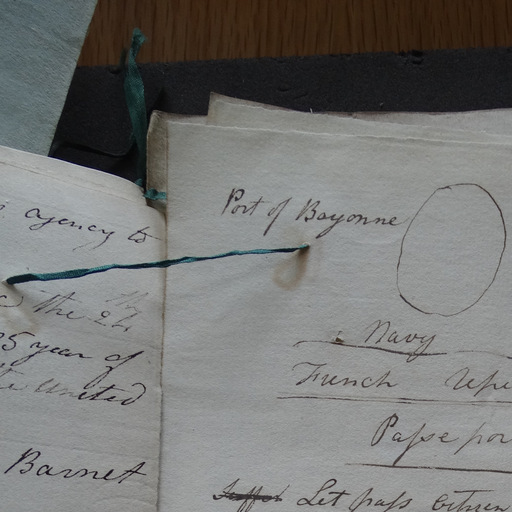 agency to
the 24th
25 year of
the United
Barnet
Port of Bayonne
Navy
French Repu
Passe por
Let pass Citizen